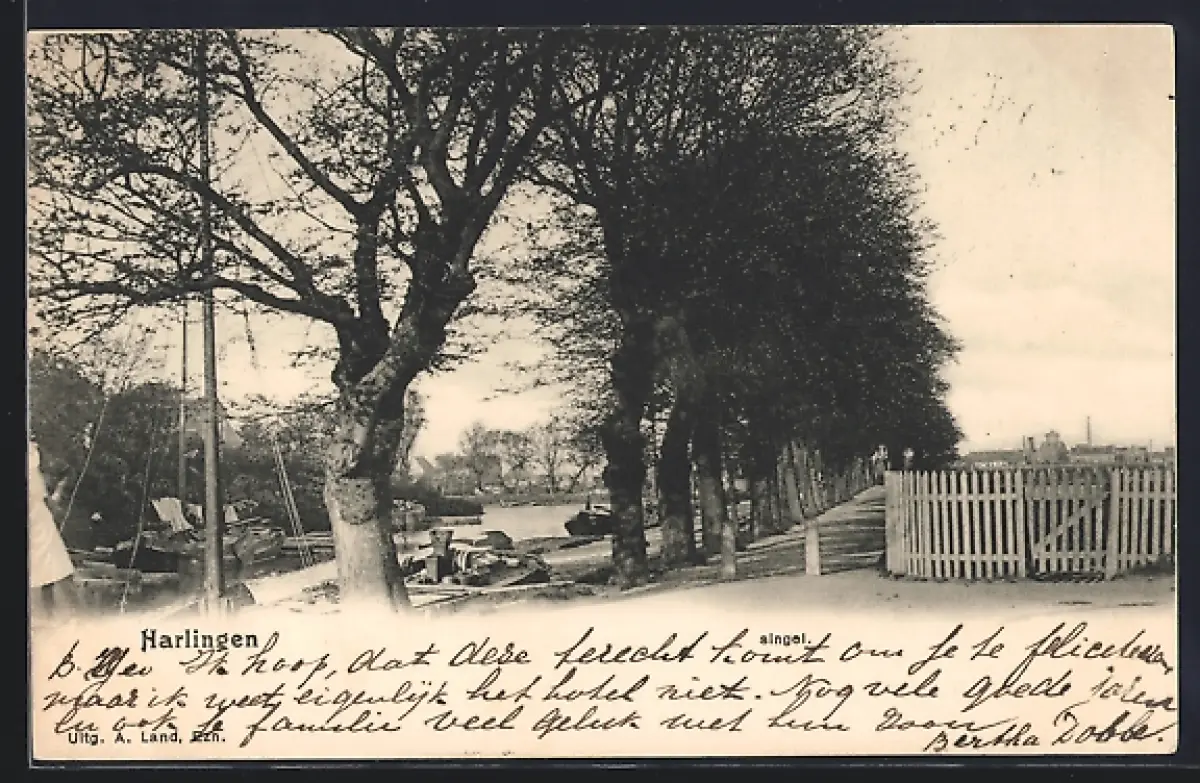 Harlingen singel.
Ik hoop, dat deze terecht komt om je te feliciteeren
maar ik weet eigenlijk het hotel niet. Nog vele goede jaren
en ook je familie veel geluk met hun Zoon
Uitg. A. Land, Ezn.
Bertha Dobbe.